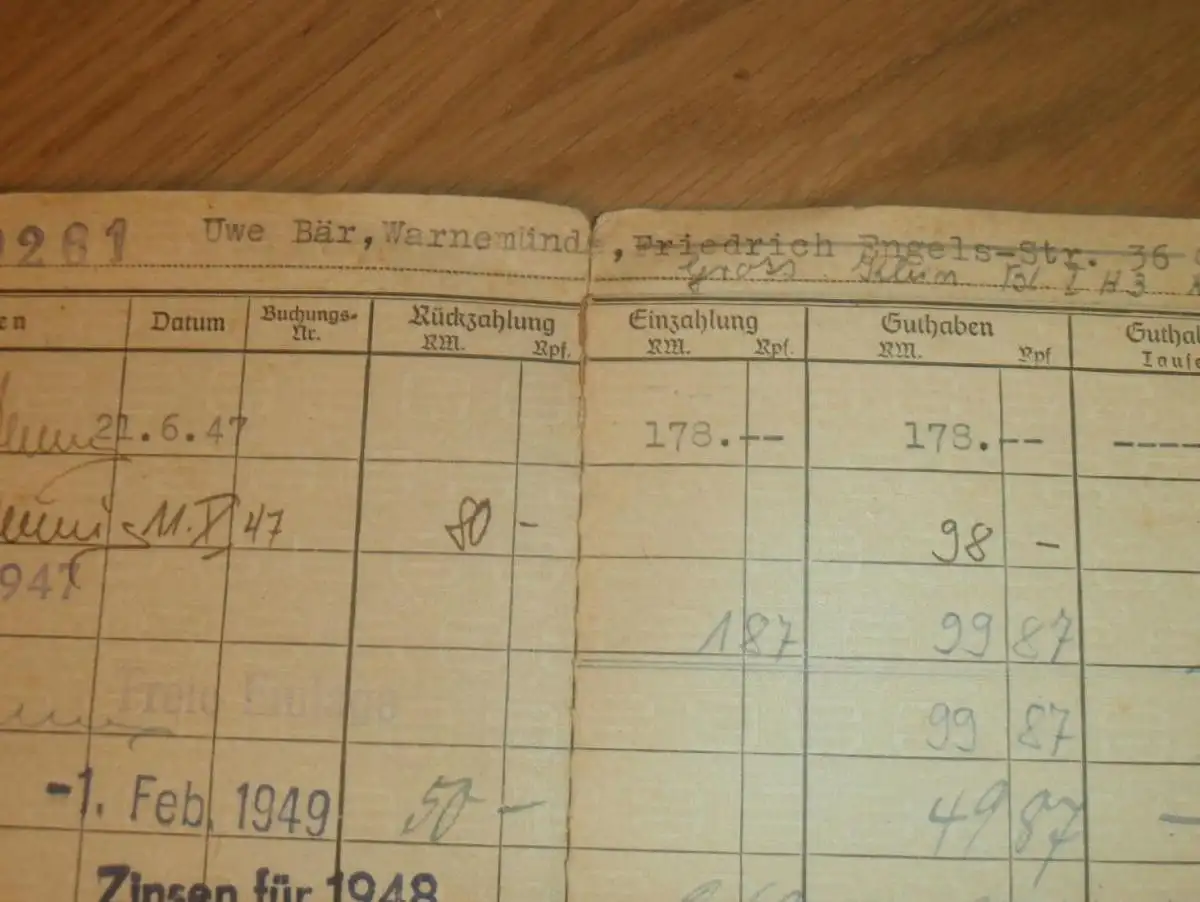 9261 Uwe Bär, Warnemünde, Friedrich Engels-Str. 36
Gross Klein Bl. I H 3
en Datum Buchungs-Nr. Rückzahlung Einzahlung Guthaben Guthab
RM. Rpf. RM. Rpf. RM. Rpf Tause
21.6.47 178.-- 178.-- ----
11.X 47 80 - 98 -
1947 1 87 99 87
Freie Einlage 99 87
-1. Feb. 1949 50 - 49 87 -
Zinsen für 1948